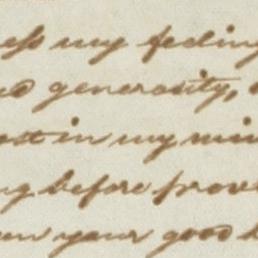 ess my feeling
generosity,
in my min
ng before prov
your good